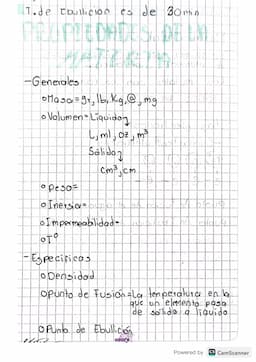 T. de Ebullición es de 30 min
PROPIEDADES DE LA
MATERIA
-Generales
o Masa= gr, lb, Kg, @, mg
o Volumen= Liquido
L, ml, oz, m³
Sólido
cm³, cm
o peso=
o Inercia=
o Impermeabilidad=
o T°
-Especificas
o Densidad
o punto de Fusión= La temperatura en la
que un elemento pasa
de solido a liquido
o Punto de Ebullición
Powered by CS CamScanner